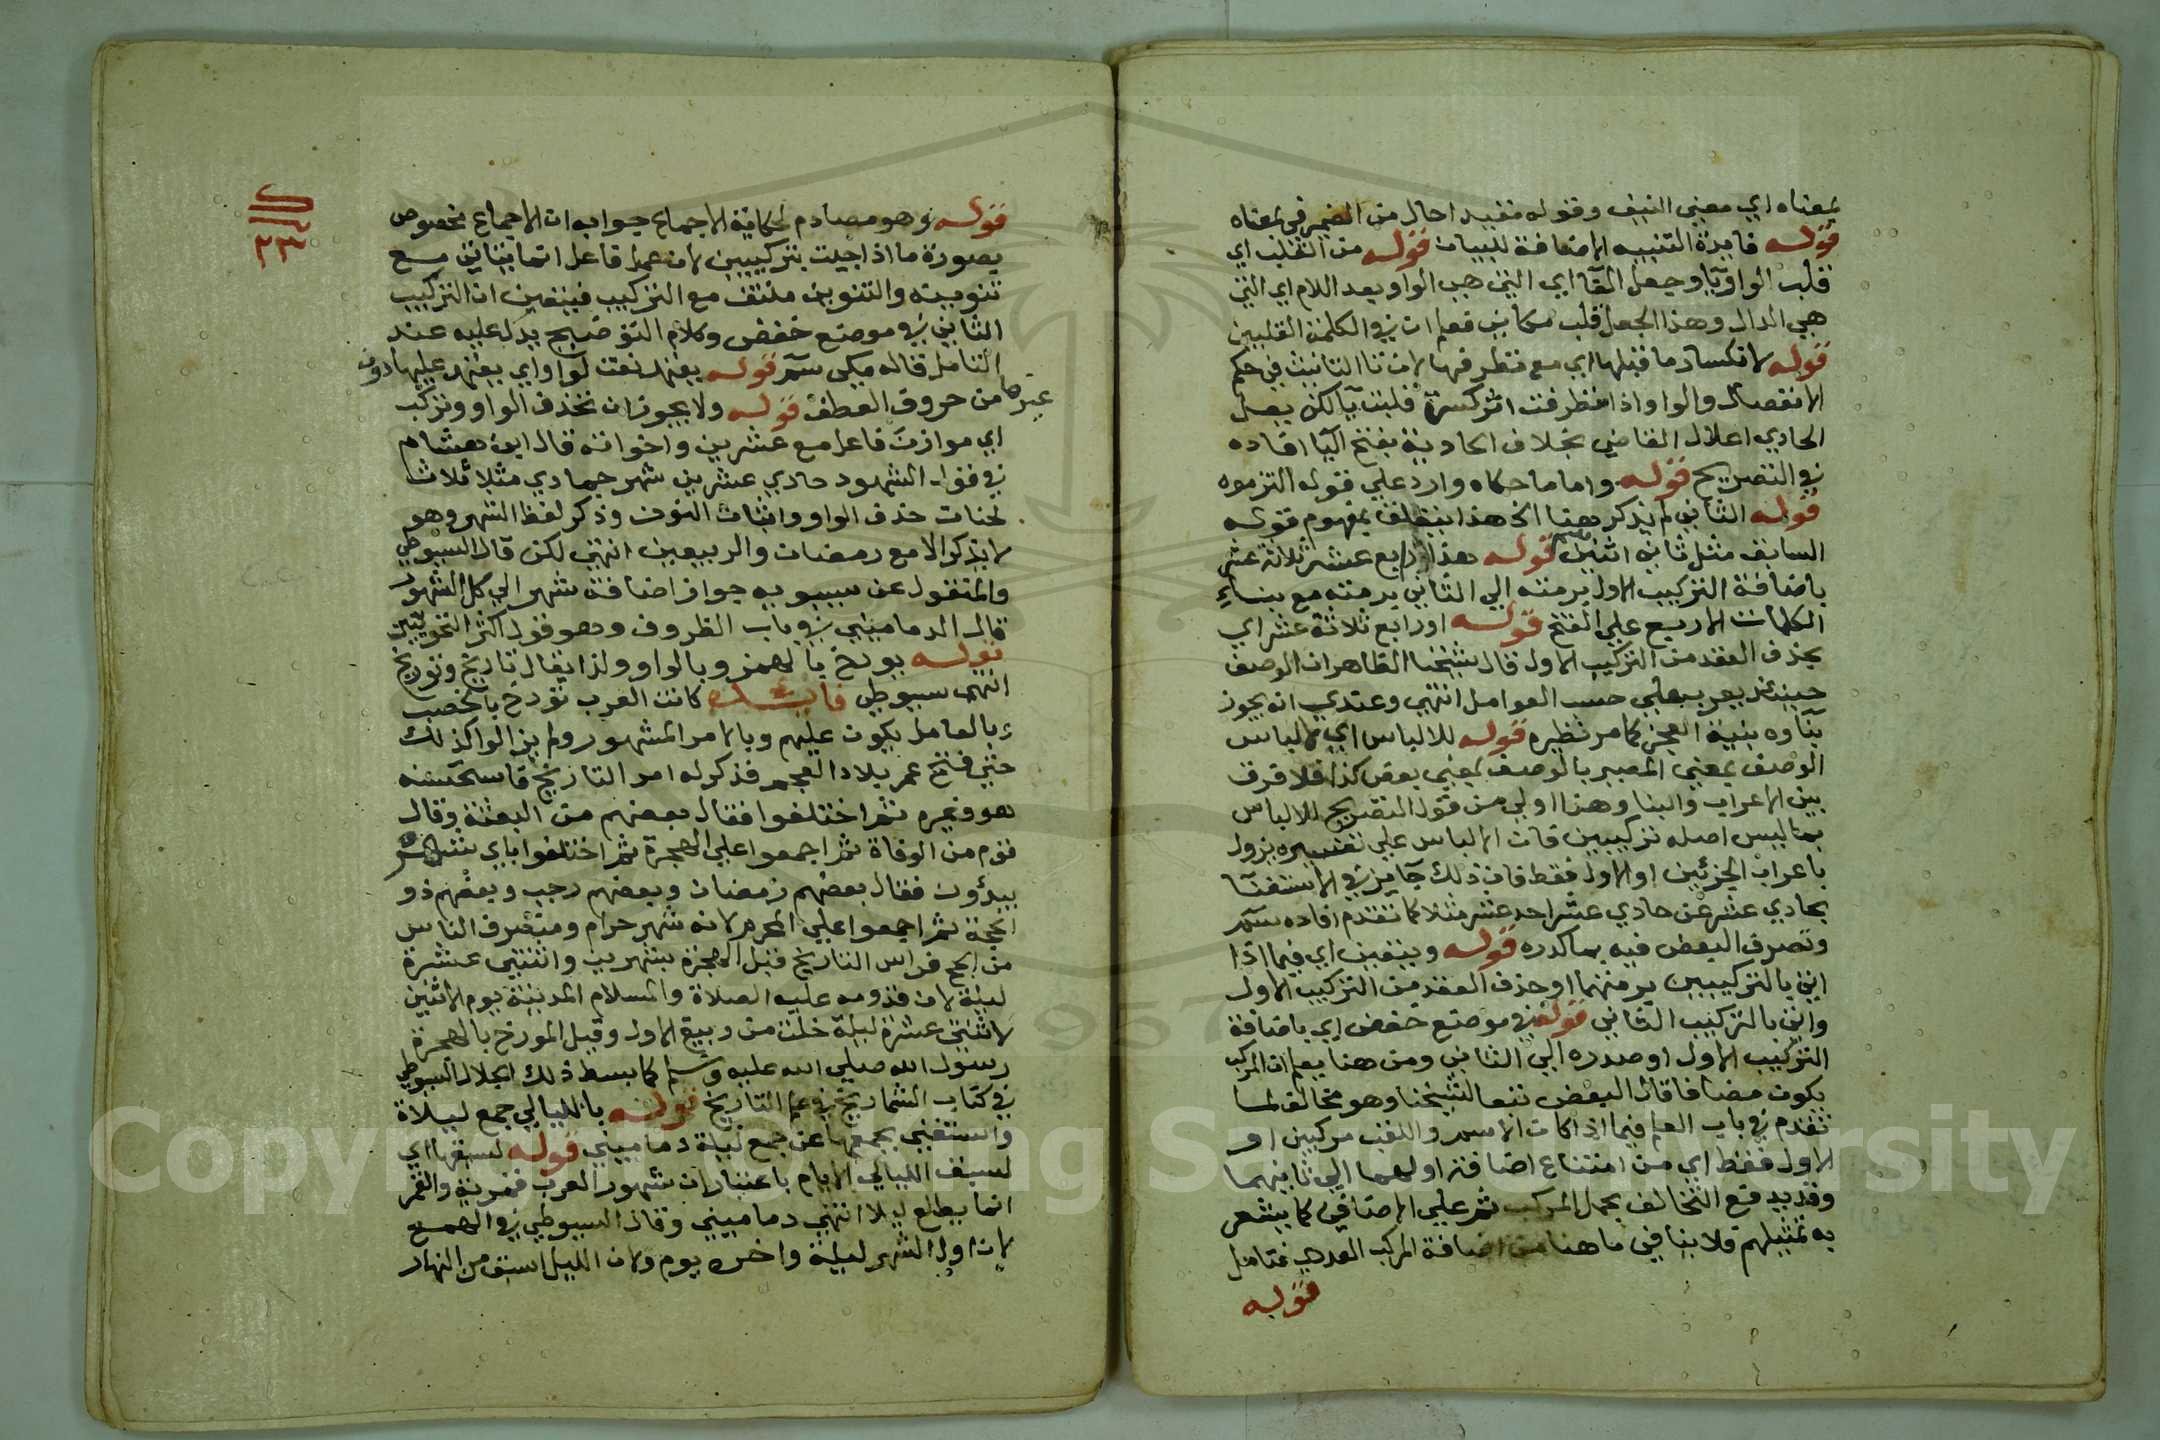 بمعناه اي معني النيف وقوله مفيد احال من الضمير في بمعناه
قوله فايدة التنبيه الاضافة للبيان قوله من القلب اي
قلب الواو يآ وجعل الفآ اي التي هي الواو بعد اللام اي التي
هي الدال وهذا الجعل قلب مكاني فعلم ان في الكلمة القلبين
قوله لانكسار ما قبلها اي مع تطرفها لان تا التانيث في حكم
الانفصال والواو اذا تطرفت اثر كسرة قلبت يآ لكن يعل
الحادي اعلال القاضي بخلاف الحادية بفتح اليا افاده
في التصريح قوله واما ما حكاه وارد علي قوله التزموه
قوله الثاني لم يذكر هنا الخ هذا يتعلق بمفهوم قوله
السابق مثل ثاني اثنين قوله هذا رابع عشر ثلاثة عشر
باضافة التركيب الاول برمته الي الثاني برمته مع بناء
الكلمات الاربع علي الفتح قوله او رابع ثلاثة عشر اي
بحذف العقد من التركيب الاول قال شيخنا الظاهر ان الوصف
حينئذ يعرب علي حسب العوامل انتهي وعندي انه يجوز
بناوه بنية العجز كما مر نظيره قوله للالباس اي لالباس
الوصف بمعني المعبر بالوصف بمعني بعض كذا فلا فرق
بين الاعراب والبنا وهنا اولي من قول التصريح للالباس
بما ليس اصله تركيبين فان الالباس علي تفسيره يزول
باعراب الجزئين او الاول فقط فان ذلك جايز في الاستغنا
بحادي عشر عن حادي عشر احد عشر مثلا كما تقدم افاده سم
وتصرف البعض فيه بما كدره قوله ويتعين اي فيما اذا
اتي بالتركيبين برمتهما او حذف العقد من التركيب الاول
واتي بالتركيب الثاني قوله في موضع خفض اي باضافة
التركيب الاول او صدره الي الثاني ومن هنا يعلم ان المركب
يكون مضافا قال البعض تبعا لشيخنا وهو مخالف لما
تقدم في باب العلم فيما اذا كان الاسم واللقب مركبين او
الاول فقط اي من امتناع اضافة اولهما الي ثانيهما
وقد يدفع التخالف بحمل المركب ثم علي الاضافي كما يشعر
به تمثيلهم فلا ينافي ما هنا من اضافة المركب العددي فتامل
قوله
٢٣
قوله وهو مصادم لحكاية الاجماع جوابه ان الاجماع مخصوص
بصورة ما اذا جيت بتركيبين لان عمل فاعل انما يتاتي مع
تنوينه والتنوين منتف مع التركيب فيتعين ان التركيب
الثاني في موضع خفض وكلام التوضيح يدل عليه عند
التامل قاله مكي سم قوله يعتمد نعت لواو اي يعتمد عليها دون
غيرها من حروف العطف قوله ولا يجوز ان تحذف الواو وتركب
اي موازن فاعل مع عشرين واخواته قال ابن هشام
في قول الشهود حادي عشرين شهر جمادي مثلا ثلاث
لحنات حذف الواو واثبات النون وذكر لفظ الشهر وهو
لا يذكر الا مع رمضان والربيعين انتهي لكن قال السيوطي
والمنقول عن سيبويه جواز اضافة شهر الي كل الشهور
قال الدماميني في باب الظروف وهو قول اكثر النحويين
قوله يورخ بالهمز وبالواو ولذا يقال تاريخ وتوريخ
انتهي سيوطي فايدة كانت العرب تورخ بالخصب
وبالعامل يكون عليهم وبالامر المشهور ولم يزالوا كذلك
حتي فتح عمر بلاد العجم فذكر له امر التاريخ فاستحسنه
هو وغيره ثم اختلفوا فقال بعضهم من البعثة وقال
قوم من الوفاة ثم اجمعوا علي الهجرة ثم اختلفوا باي شهر
يبدؤن فقال بعضهم رمضان وبعضهم رجب وبعضهم ذو
الحجة ثم اجمعوا علي المحرم لانه شهر حرام ومنصرف الناس
من الحج فراس التاريخ قبل الهجرة بشهرين واثنتي عشرة
ليلة لان قدومه عليه الصلاة والسلام المدينة يوم الاثنين
لاثنتي عشرة ليلة خلت من ربيع الاول وقيل المورخ بالهجرة
رسول الله صلي الله عليه وسلم كما بسط ذلك الجلال السيوطي
في كتاب الشماريخ في علم التاريخ قوله بالليالي جمع ليلاة
واستغني بجمعها عن جمع ليلة دماميني قوله لسبقها اي
لسبق الليالي الايام باعتبار ان شهور العرب قمرية والقمر
انما يطلع ليلا انتهي دماميني وقال السيوطي في الهمع
لان اول الشهر ليلة واخره يوم ولان الليل اسبق من النهار
Copyright © King Saud University
1957